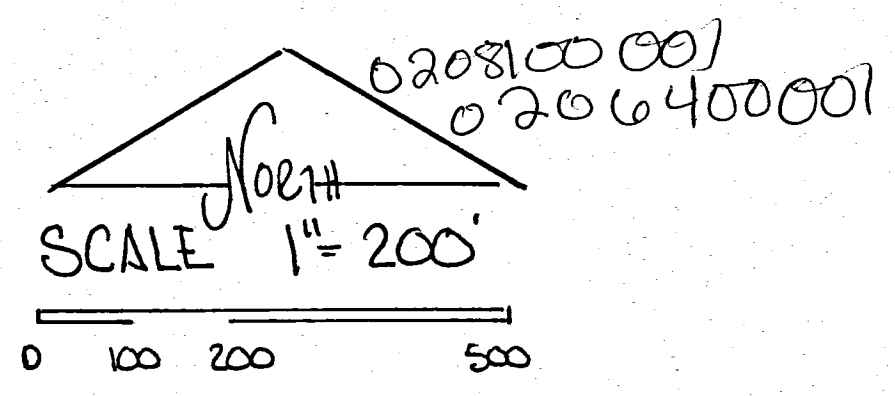 0208100 001
020 6400001
North
SCALE 1"= 200'
0 100 200 500